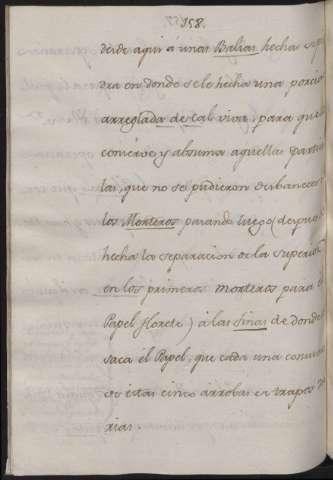 158.
desde aqui á unas Balias hecha
dra en donde se le hecha una porcio
arreglada de Cal viva, para que
conserve y absuma aquellas partic
las, que no se pudieron desbanecer
los Morteros parando luego (despues
hecha la separacion de la superior
en los primeros morteros para el
Papel florete) á las tinas de donde
saca el Papel, que cada una consume
de estas cinco arrobas en trapos
rias.